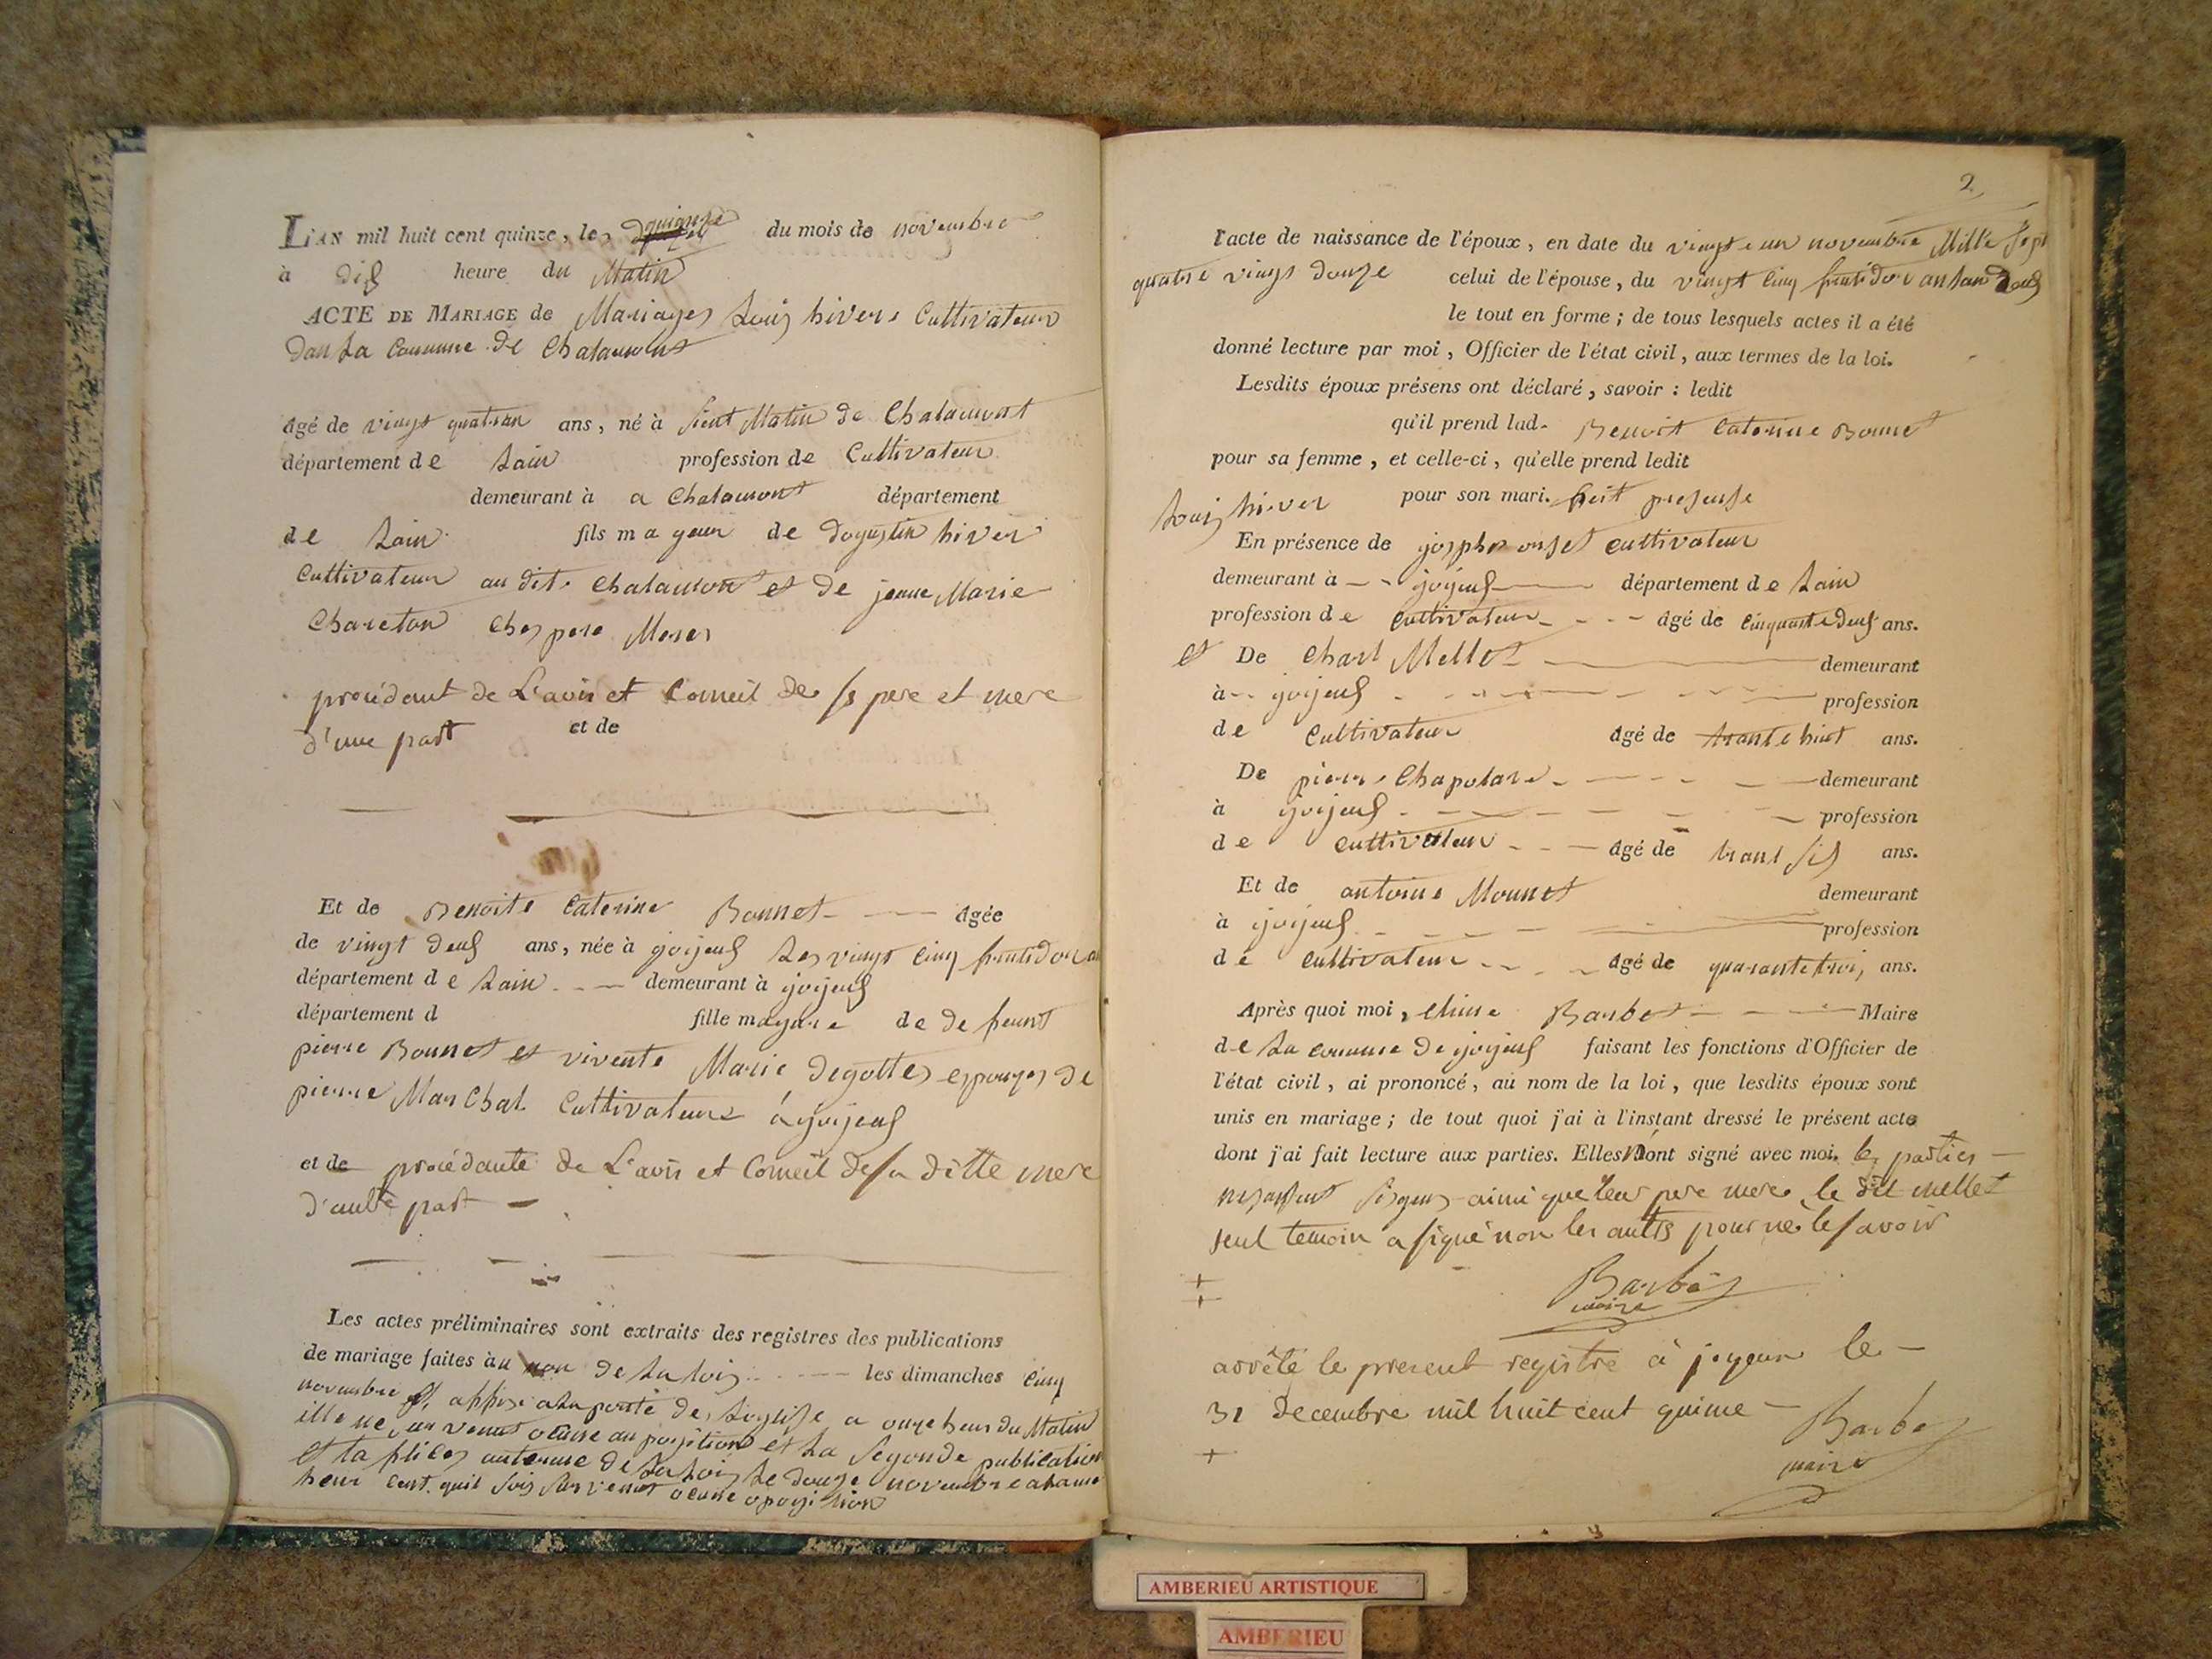 L'AN mil huit cent quinze, les quinze du mois de novembre
à dis heure du Matin
ACTE DE MARIAGE de Mariages Louis hivers Cultivateur
Dans La Commune de Chalamont
âgé de vingt quatran ans, né à Sient Matin de Chalamont
département de Lain profession de Cultivateur
demeurant à a Chalamont département
de Lain fils mageur de Dogustin hiver
Cultivateur au dit Chalamont et de jeanne Marie
Chareton Ches pere Meres
procédant de L'avis et Conseil de ss pere et mere
d'une part et de
Et de Benoite Caterine Bonnet âgée
de vingt deus ans, née à joyeus Les vingt Cinq frutidor an
département de Lain demeurant à joyeus
département d fille mayore de defeunt
pierre Bonnet et vivente Marie degottes espouzes de
pierre Marchal Cultivateurs à joyeus
et de procédante de L'avis et Conseil de sa ditte mere
d'autre part
Les actes préliminaires sont extraits des registres des publications
de mariage faites au non de La loix les dimanches Cinq
novembre affixe a La porte de Leglise a onze heur du Matin
ille ne venut ocune oupozition et La Segonde publication
et ta plicos autenne de La Loix Le douze novembre a
heur Cent quil Sois Survenut ocune opozition
2
l'acte de naissance de l'époux, en date du vingt e un novembre Mille Sept
quatre vingt douze celui de l'épouse, du vingt Cinq frutidor an Lan Deus
le tout en forme ; de tous lesquels actes il a été
donné lecture par moi, Officier de l'état civil, aux termes de la loi.
Lesdits époux présens ont déclaré, savoir : ledit
qu'il prend lad. Benoit Caterine Bonnet
pour sa femme, et celle-ci, qu'elle prend ledit
Louis hiver pour son mari.
En présence de cultivateur
demeurant à joyeus département de Lain
profession de Cultivateur âgé de Cinquante deus ans.
et De Charl Mellet demeurant
à joyeus profession
de Cultivateur âgé de trante huit ans.
De pierre Chapolard demeurant
à joyeus profession
de cultivateur âgé de trant sis ans.
Et de antoine Monnet demeurant
à joyeus profession
de cultivateur âgé de quarante trois ans.
Après quoi moi, Barbet Maire
de La commune de joyeus faisant les fonctions d'Officier de
l'état civil, ai prononcé, au nom de la loi, que lesdits époux sont
unis en mariage ; de tout quoi j'ai à l'instant dressé le présent acte
dont j'ai fait lecture aux parties. Elles N'ont signé avec moi. les parties
ainsi que leur pere mere le dit mellet
seul temoin a signé non les autrs pour ne le savoir
Barbet
maire
arrêté le present registre à joyeux le
31 decembre mil huit cent quinze
Barbet
maire
AMBERIEU ARTISTIQUE
AMBERIEU